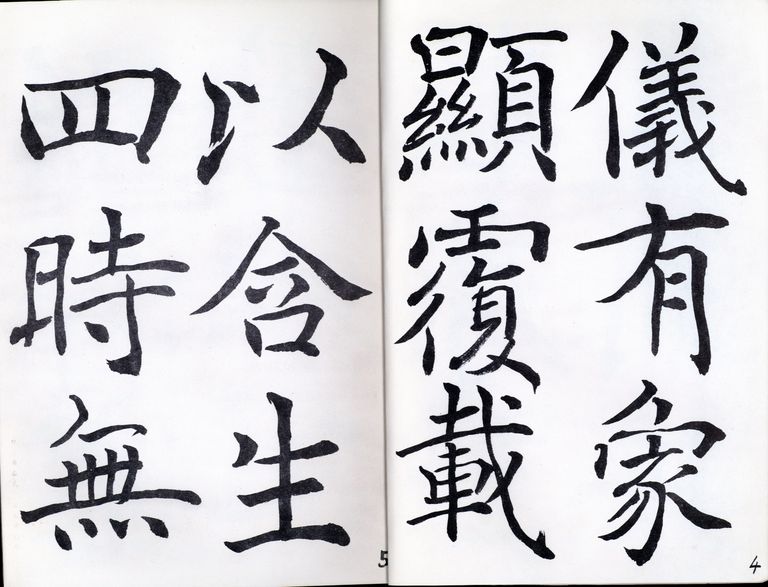 儀有象
顯覆載
4
以含生
四時無
5